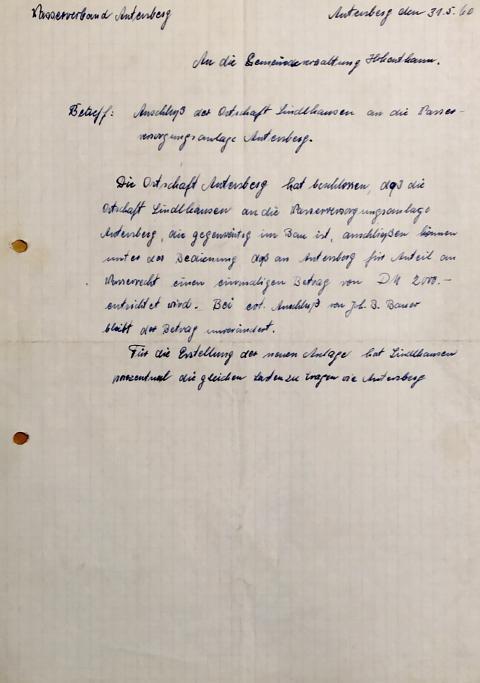 Wasserverband Antersberg
Antersberg den 31.5.60
An die Gemeindeverwaltung Hohenthann.
Betreff: Anschluß der Ortschaft Lindlhausen an die Wasser-
versorgungsanlage Antersberg.
Die Ortschaft Antersberg hat beschlossen, daß die
Ortschaft Lindlhausen an die Wasserversorgungsanlage
Antersberg, die gegenwärtig im Bau ist, anschließen können
unter der Bedienung daß an Antersberg für Anteil am
Wasserrecht einen einmaligen Betrag von DM 2000.-
entrichtet wird. Bei evt. Anschluß von Joh. B. Bauer
bleibt der Betrag unverändert.
Für die Erstellung der neuen Anlage hat Lindlhausen
prozentual die gleichen Lasten zu tragen wie Antersberg